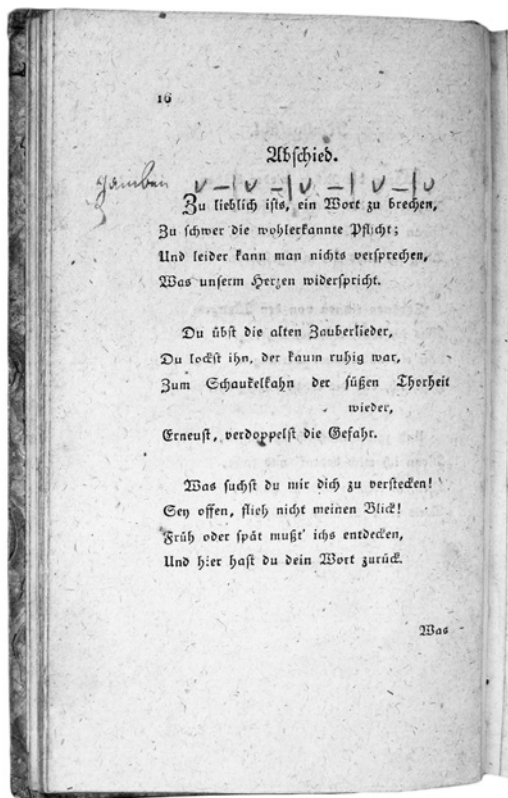 16
Abschied.
Jamben ∪ – | ∪ – | ∪ – | ∪ – | ∪
Zu lieblich ists, ein Wort zu brechen,
Zu schwer die wohlerkannte Pflicht;
Und leider kann man nichts versprechen,
Was unserm Herzen widerspricht.
Du übst die alten Zauberlieder,
Du lockst ihn, der kaum ruhig war,
Zum Schaukelkahn der süßen Thorheit
wieder,
Erneust, verdoppelst die Gefahr.
Was suchst du mir dich zu verstecken!
Sey offen, flieh nicht meinen Blick!
Früh oder spät mußt' ichs entdecken,
Und hier hast du dein Wort zurück.
Was